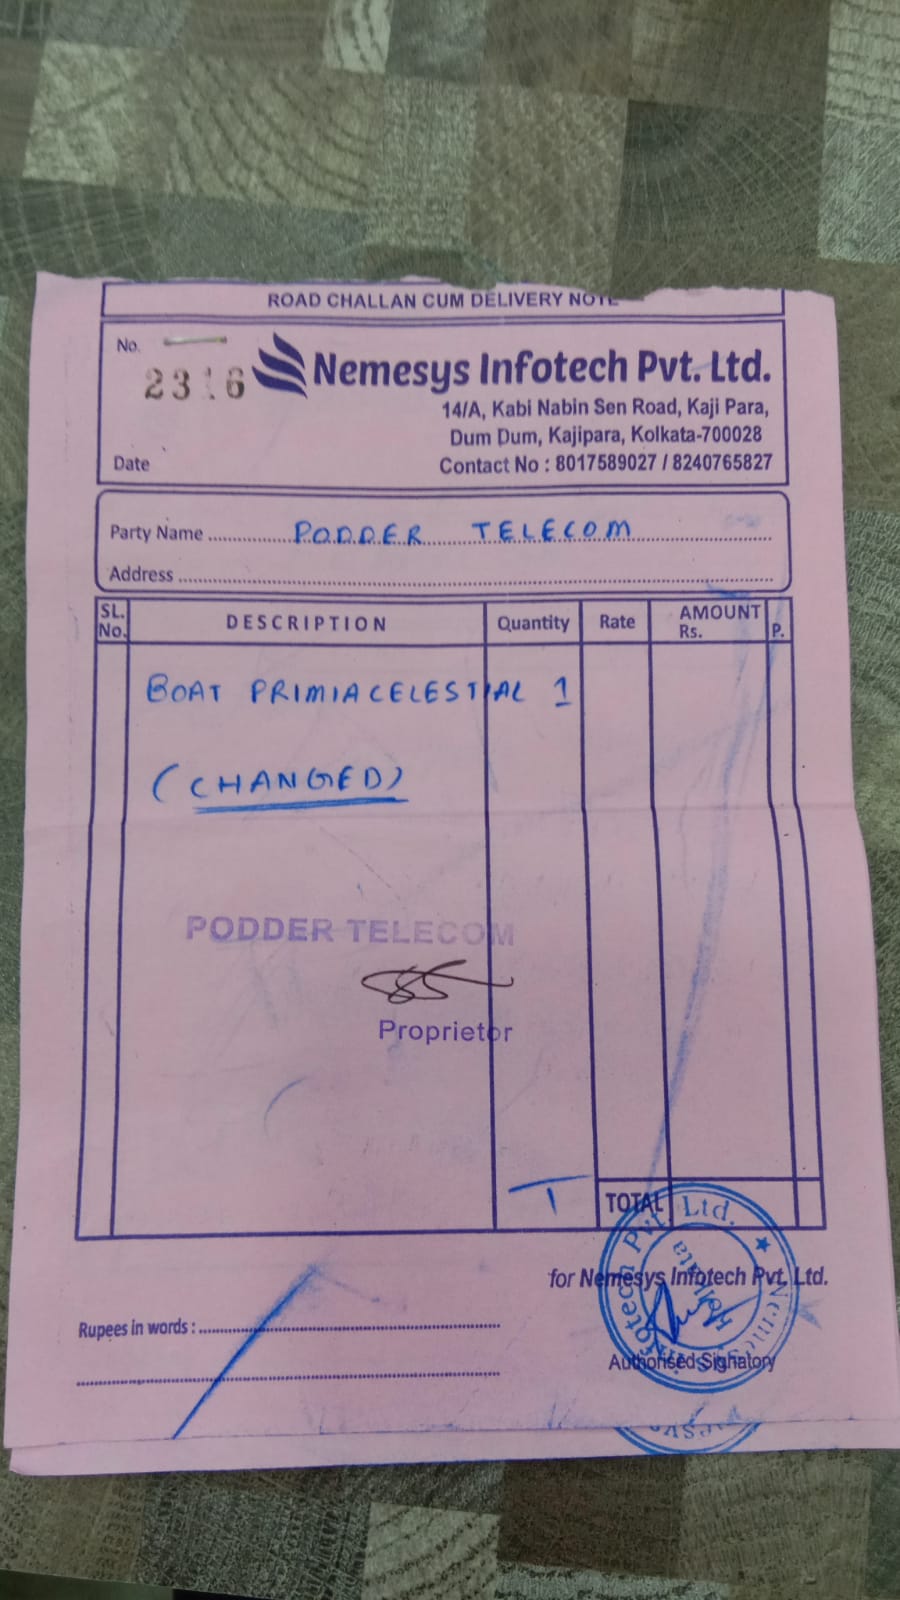 ROAD CHALLAN CUM DELIVERY NOTE
No.
2316
Nemesys Infotech Pvt. Ltd.
14/A, Kabi Nabin Sen Road, Kaji Para,
Dum Dum, Kajipara, Kolkata-700028
Date
Contact No : 8017589027 / 8240765827
Party Name PODDER TELECOM
Address
SL. No. DESCRIPTION Quantity Rate AMOUNT Rs. P.
BOAT PRIMIACELESTIAL 1
(CHANGED)
PODDER TELECOM
Proprietor
1 TOTAL
for Nemesys Infotech Pvt. Ltd.
Nemesys Infotech Pvt. Ltd. ★
Kolkata
Rupees in words :
Authorised Signatory